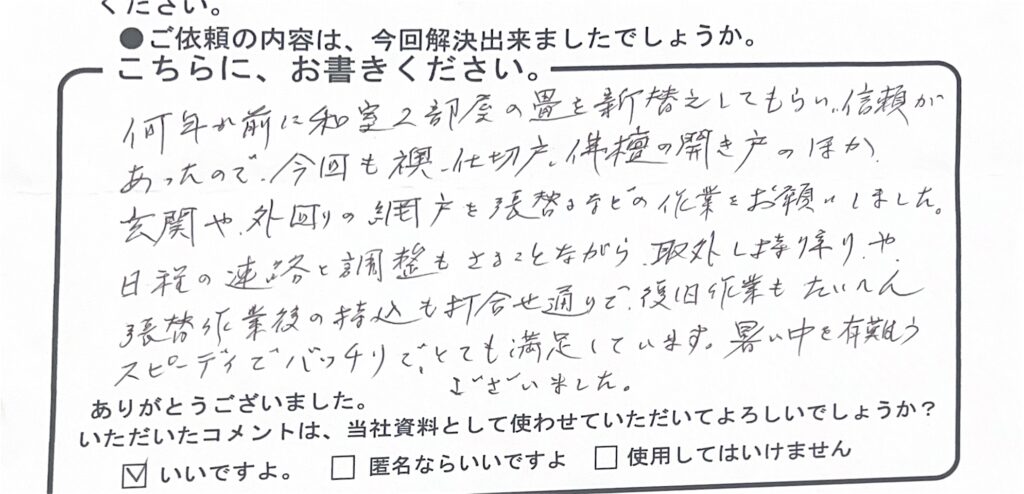 ください。
●ご依頼の内容は、今回解決出来ましたでしょうか。
こちらに、お書きください。
何年か前に和室2部屋の畳を新替えしてもらい、信頼が
あったので、今回も襖、仕切戸、佛檀の開き戸のほか、
玄関や、外回りの網戸を張替るなどの作業をお願いしました。
日程の連絡と調整もさることながら、取外し持ち帰り、や、
張替作業後の持込も打合せ通りで、復旧作業もたいへん
スピーディでバッチリで、とても満足しています。暑い中を有難う
ございました。
ありがとうございました。
いただいたコメントは、当社資料として使わせていただいてよろしいでしょうか？
☑ いいですよ。 □ 匿名ならいいですよ □ 使用してはいけません